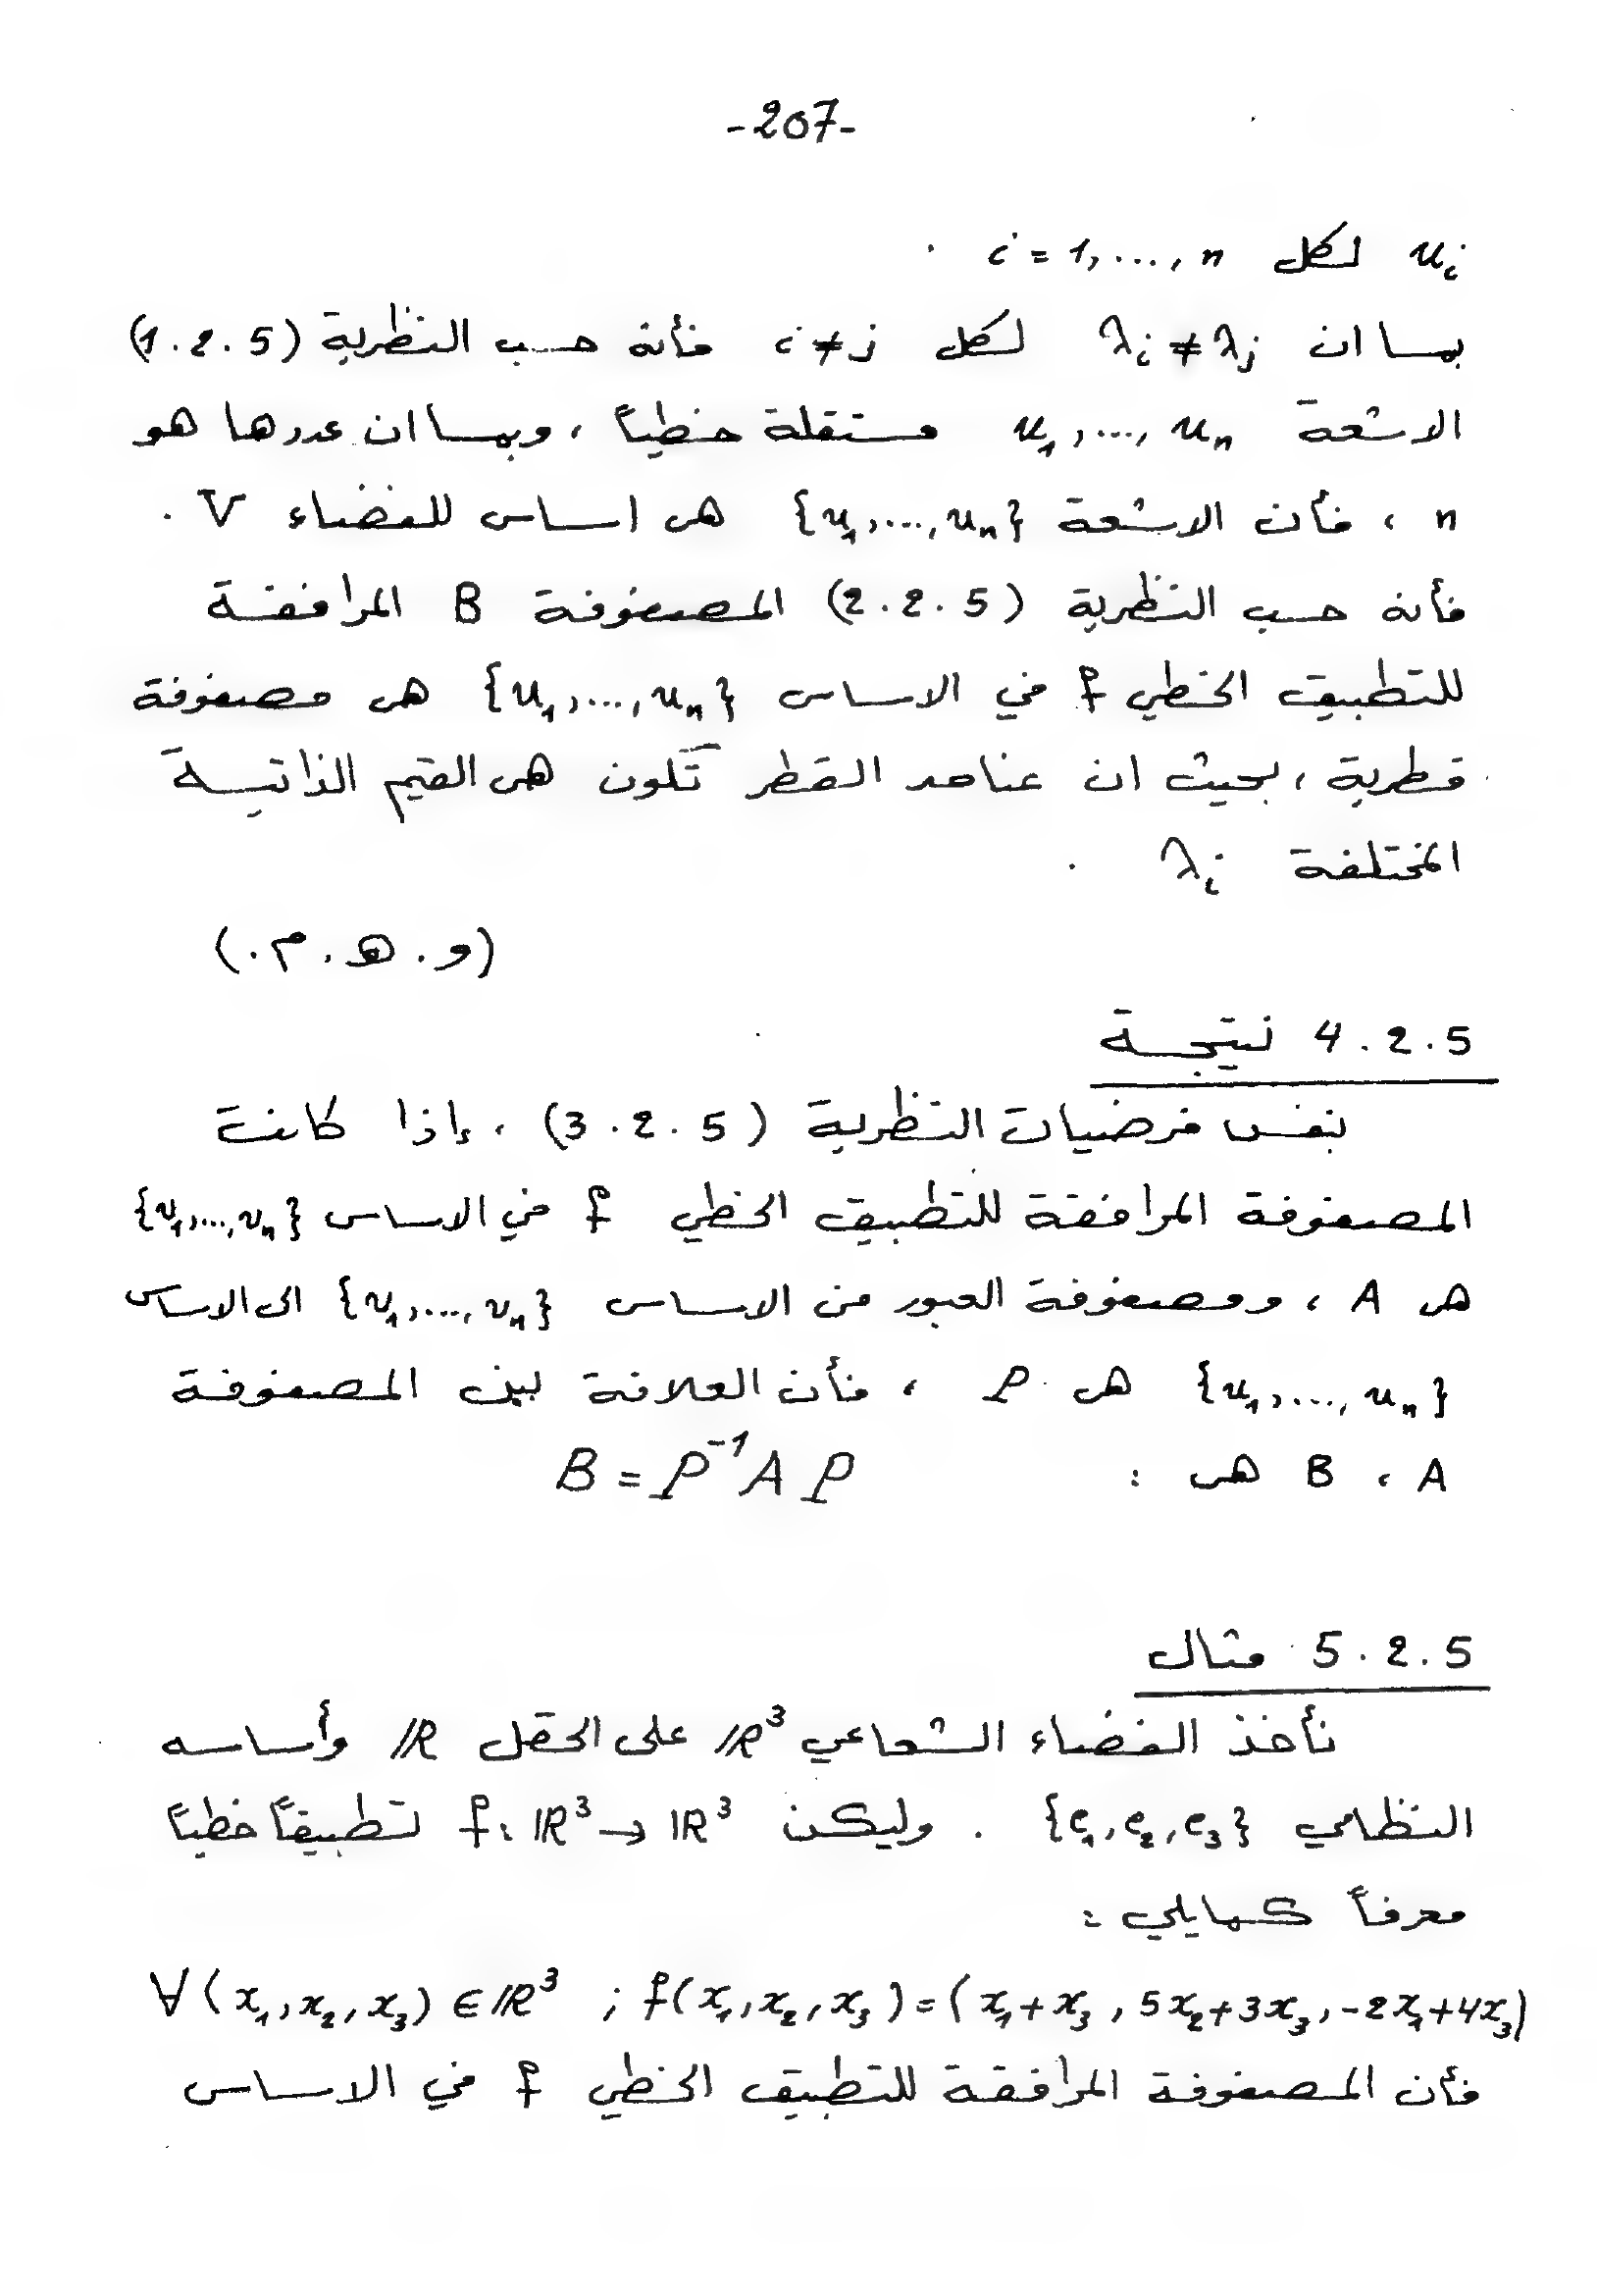 -207-
u_i لكل i = 1, ..., n .
بما ان λ_i ≠ λ_j لكل i ≠ j فأنه حسب النظرية (1.2.5)
الاشعة u_1, ..., u_n مستقلة خطياً ، وبما ان عددها هو
n ، فأن الاشعة {u_1, ..., u_n} هي اساس للفضاء V .
فأنه حسب النظرية (2.2.5) المصفوفة B المرافقة
للتطبيق الخطي f في الاساس {u_1, ..., u_n} هي مصفوفة
قطرية ، بحيث ان عناصر القطر تكون هي القيم الذاتية
المختلفة λ_i .
(و . ه . م .)
4.2.5 نتيجة
بنفس فرضيات النظرية (3.2.5) ، إذا كانت
المصفوفة المرافقة للتطبيق الخطي f في الاساس {v_1, ..., v_n}
هي A ، ومصفوفة العبور من الاساس {v_1, ..., v_n} الى الاساس
{u_1, ..., u_n} هي P ، فأن العلاقة بين المصفوفة
A ، B هي : B = P⁻¹ A P
5.2.5 مثال
نأخذ الفضاء الشعاعي ℝ³ على الحقل ℝ وأساسه
النظامي {e_1, e_2, e_3} . وليكن f : ℝ³ → ℝ³ تطبيقاً خطياً
معرفاً كمايلي :
∀ (x_1, x_2, x_3) ∈ ℝ³ ; f(x_1, x_2, x_3) = (x_1 + x_3 , 5x_2 + 3x_3 , -2x_1 + 4x_3)
فأن المصفوفة المرافقة للتطبيق الخطي f في الاساس